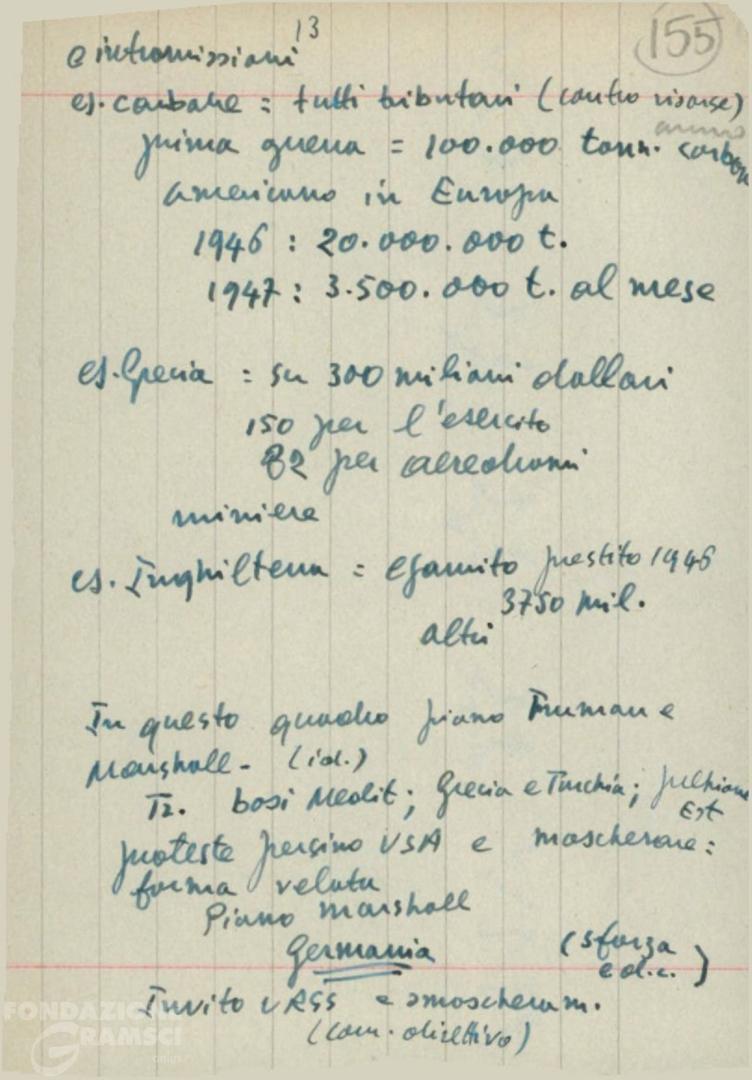 13
155
e intromissioni
es. carbone = tutti tributari (contro risorse)
annuo
prima guerra = 100.000 tonn. carbon
americano in Europa
1946 : 20.000.000 t.
1947 : 3.500.000 t. al mese
es. Grecia = su 300 milioni dollari
150 per l'esercito
82 per aerodromi
miniere
es. Inghilterra = esaurito prestito 1946
3750 mil.
altri
In questo quadro piano Truman e
Marshall - (id.)
Tr. basi Medit; Grecia e Turchia;
Est
proteste persino USA e mascherare:
forma velata
Piano Marshall
Germania (Sforza
e d.c.)
Invito URSS e smascheram.
(com. direttivo)
FONDAZIONE
GRAMSCI
onlus